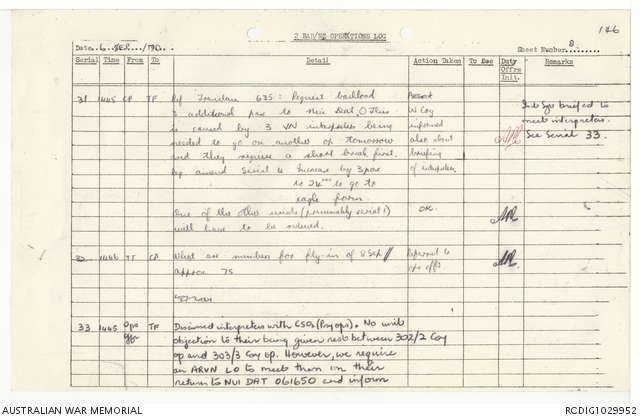 146
2 RAR/NZ OPERATIONS LOG
Date. 6 SEP /70.
Sheet Number 8
Serial Time From To Detail Action Taken To See Duty Offrs Init. Remarks
31 1445 CP TF Ref Loanclear 635: Request backload
3 additional pax to Nui Dat. This W Coy
is caused by 3 VN interpreters being informed
needed to go on another op tomorrow also about
and they require a short break first. briefing
amend Serial to increase by 3 pax of interpreters
to 24 to go to
eagle farm.
One of the other serials (presumably serial 1) OK.
will have to be reduced.
Int Sgt briefed to
meet interpreters.
See Serial 33.
32 1446 TF CP What are numbers for fly-in of 8 Sep // Referred to
approx 75 ops offr
33 1445 Ops Offr TF Discussed interpreters with GSO3 (Psyops). No unit
objection to their being given rest between 302/2 Coy
op and 303/3 Coy op. However, we require
an ARVN LO to meet them on their
return to NUI DAT 061650 and inform
AUSTRALIAN WAR MEMORIAL
RCDIG1029952